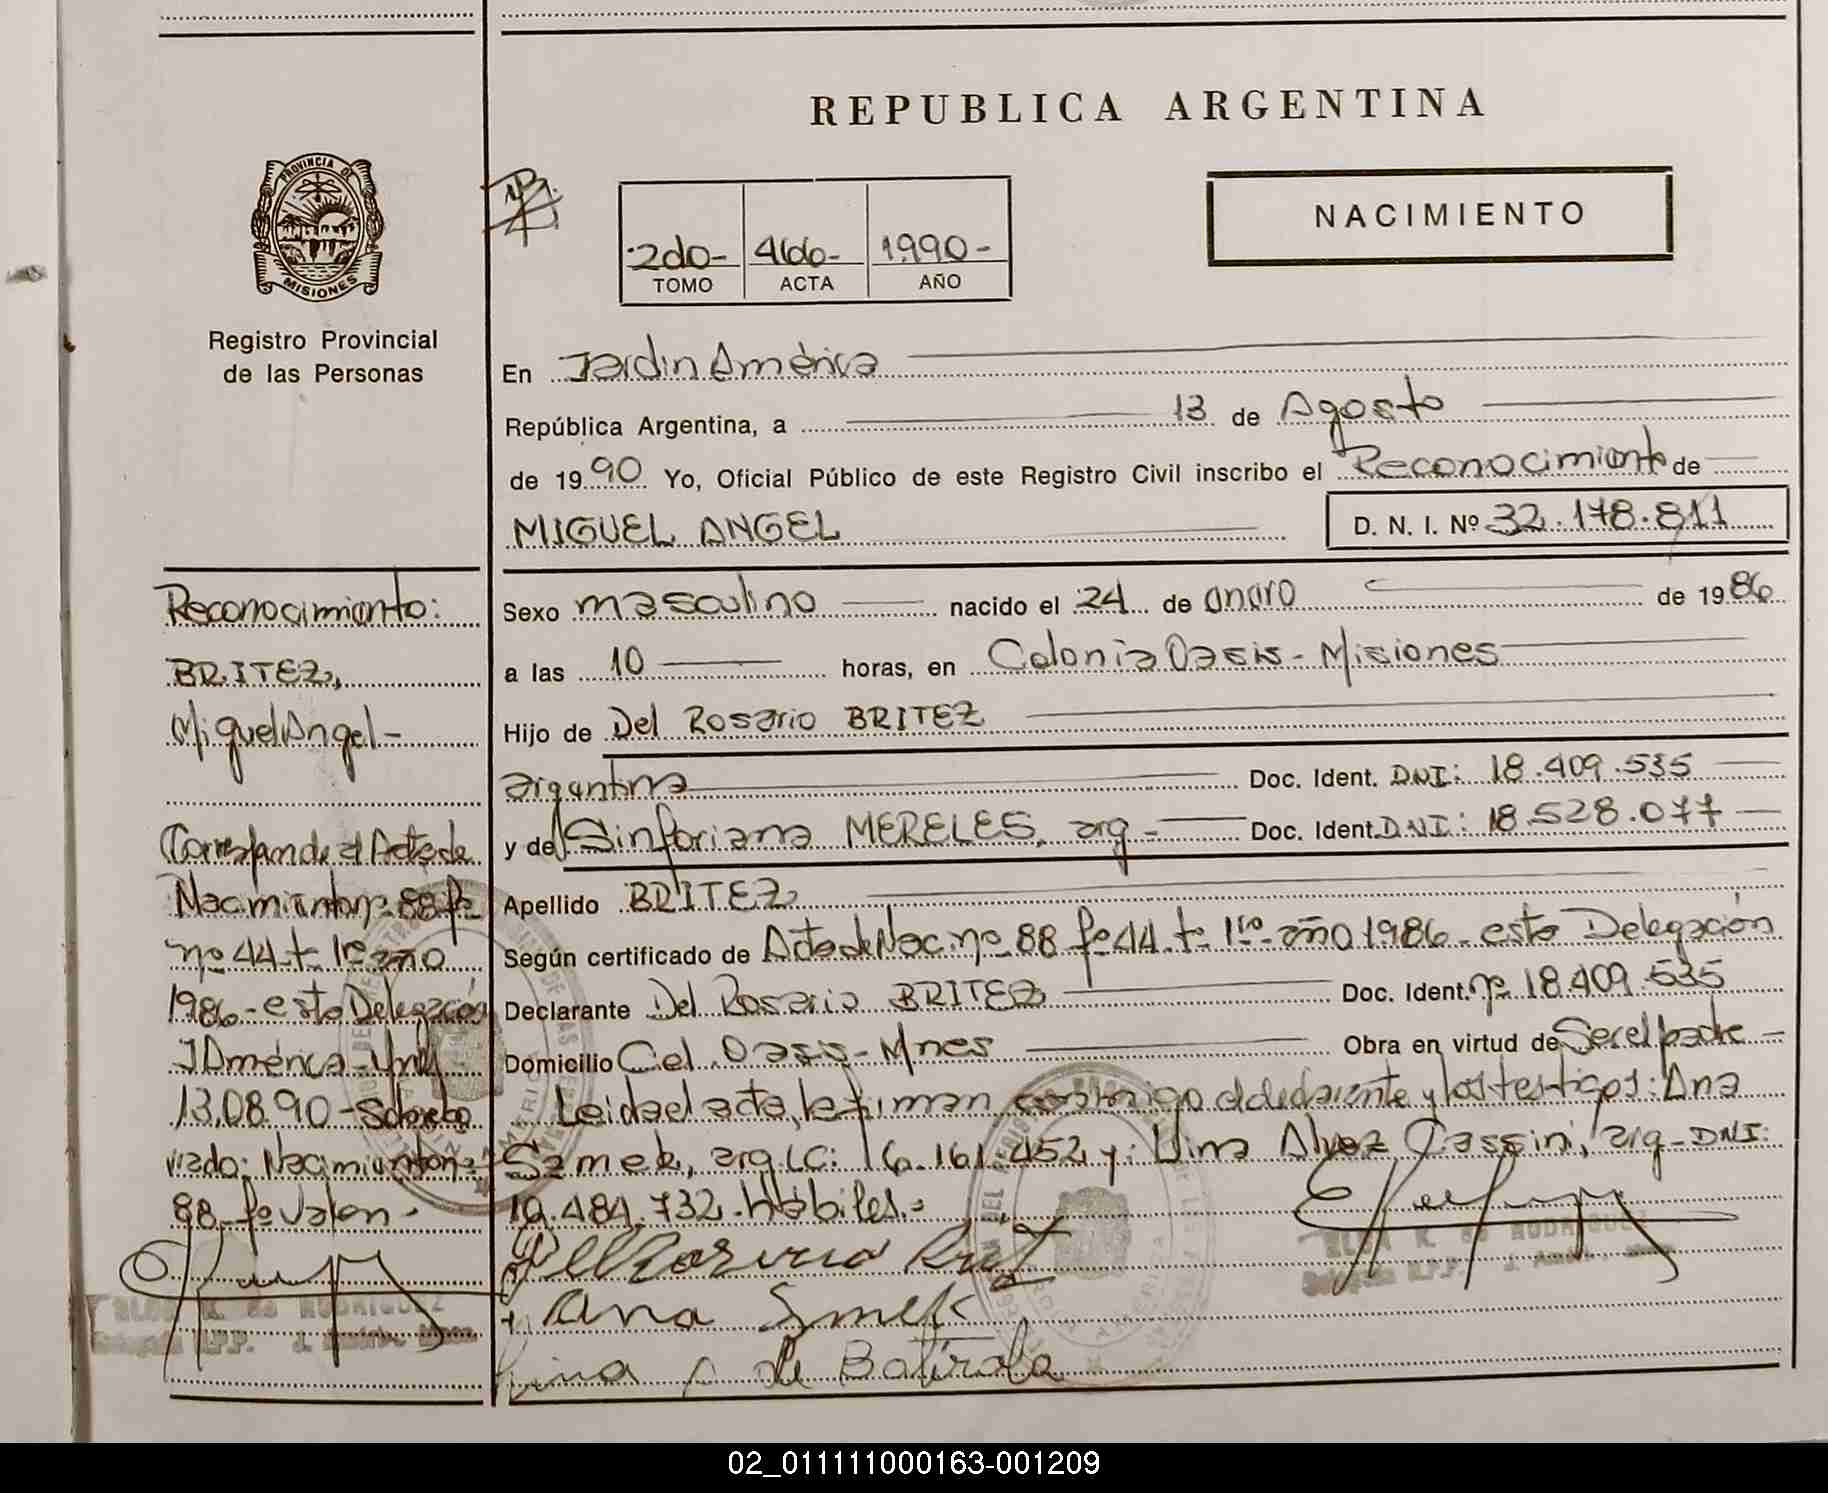 REPUBLICA ARGENTINA
PROVINCIA DE
MISIONES
Registro Provincial
de las Personas
2do- 460- 1990-
TOMO ACTA AÑO
NACIMIENTO
En Jardin América
República Argentina, a 13 de Agosto
de 1990 Yo, Oficial Público de este Registro Civil inscribo el Reconocimiento de
MIGUEL ANGEL D. N. I. Nº 32.178.811
Sexo masculino nacido el 24 de enero de 1986
a las 10 horas, en Colonia Oasis - Misiones
Hijo de Del Rosario BRITEZ
argentina Doc. Ident. DNI: 18.409.535
y de Sinforiana MERELES, arg - Doc. Ident. DNI: 18.528.077
Apellido BRITEZ
Según certificado de Acta de Nac. nº 88 fº 44 tº 1ro año 1986 - esta Delegación
Declarante Del Rosario BRITEZ Doc. Ident. nº 18.409.535
Domicilio Col. Oasis - Mnes Obra en virtud de Ser el padre -
Leida el acta, la firman conmigo el declarante y los testigos: Ana
Samek, arg LC: 6.161.452 y: Lina Alvez Cassini, arg - DNI:
10.484.732. hábiles.=
Ana Smek
Lina de
ELSA R. de RODRIGUEZ
Reconocimiento:
BRITEZ,
Miguel Angel -
Corresponde al Acta de
Nacimiento nº 88 fº
nº 44 tº 1ro año
1986 - esta Delegación
J América -
13.08.90 - Sobre
viado: Nacimiento nº
88 fº Valen -
ELSA R. de RODRIGUEZ
02_011111000163-001209